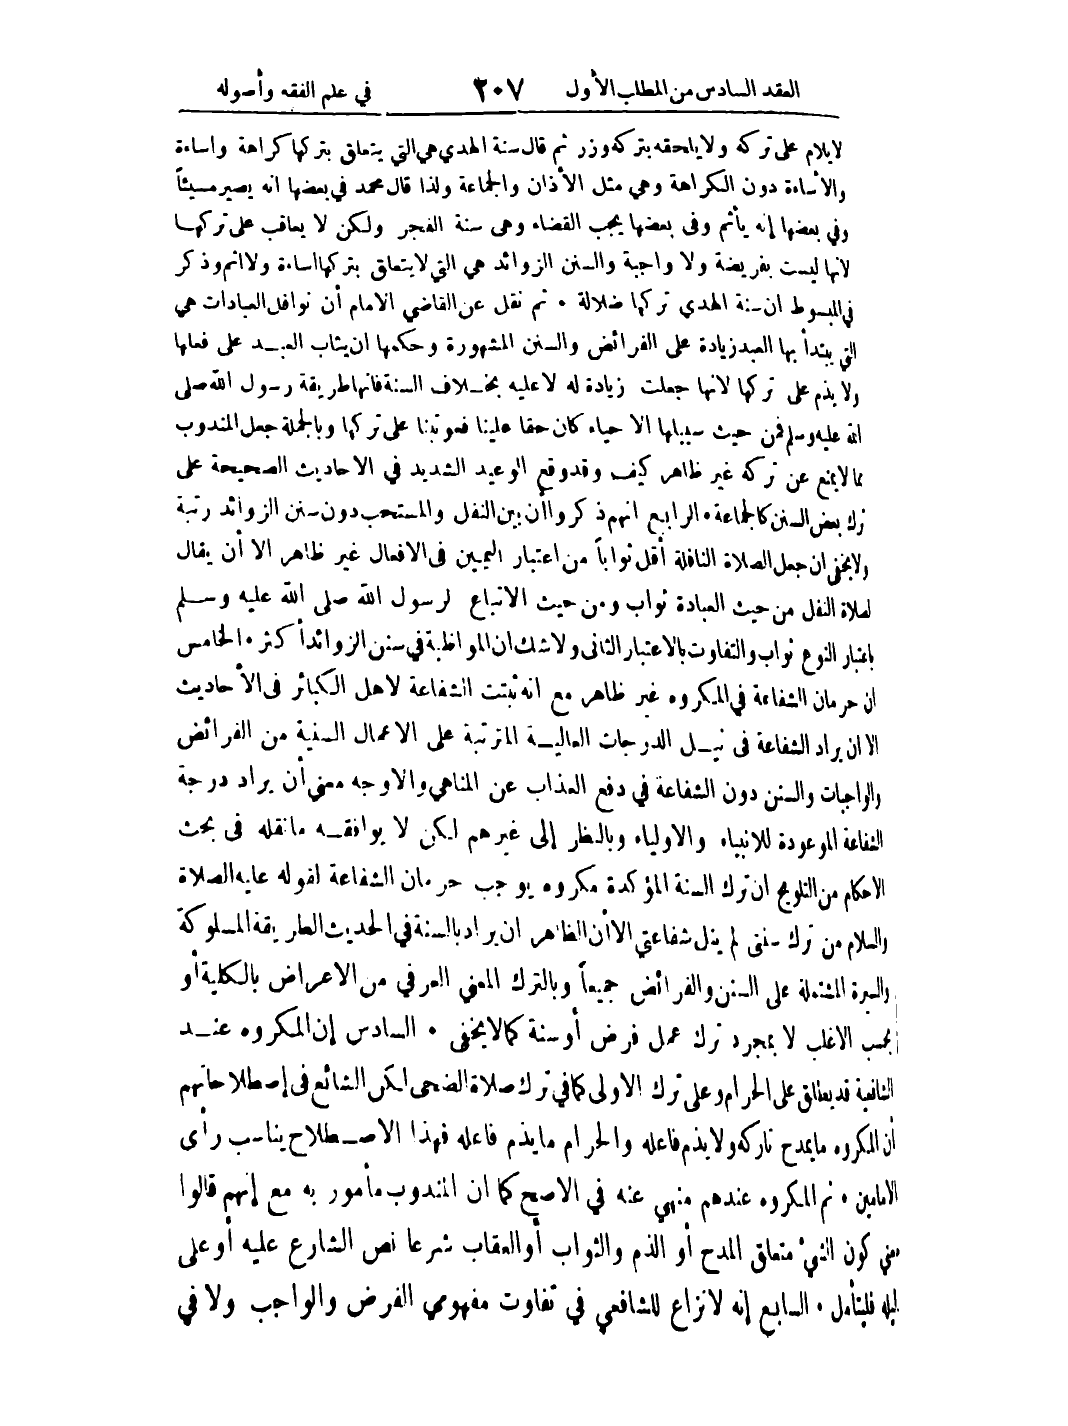 العقد السادس من المطلب الأول ٢٠٧ في علم الفقه وأصوله
لايلام على تركه ولا يلحقه بتركه وزر ثم قال سنة الهدي هي التي يتعلق بتركها كراهة واساءة
والاساءة دون الكراهة وهي مثل الأذان والجماعة ولذا قال محمد في بعضها انه يصير مسيئاً
وفي بعضها إنه يأثم وفى بعضها يجب القضاء وهى سنة الفجر ولكن لا يعاقب على تركها
لانها ليست بفريضة ولا واجبة والسنن الزوائد هي التي لا يتعلق بتركها اساءة ولا اثم وذكر
في المبسوط ان سنة الهدي تركها ضلالة ٠ ثم نقل عن القاضي الامام أن نوافل العبادات هي
التي يبتدأ بها العبد زيادة على الفرائض والسنن المشهورة وحكمها ان يثاب العبد على فعلها
ولا يذم على تركها لانها جعلت زيادة له لا عليه بخلاف السنة فانها طريقة رسول الله صلى
الله عليه وسلم فمن حيث سبيلها الاحياء كان حقا علينا فعوتبنا على تركها وبالجملة جعل المندوب
مما لا يمنع عن تركه غير ظاهر كيف وقد وقع الوعيد الشديد في الاحاديث الصحيحة على
ترك بعض السنن كالجماعة ٠ الرابع انهم ذكروا أن بين النفل والمستحب دون سنن الزوائد رتبة
ولا يخفى ان جعل الصلاة النافلة أقل ثواباً من اعتبار اليمين فى الافعال غير ظاهر الا أن يقال
لصلاة النفل من حيث العبادة ثواب ومن حيث الاتباع لرسول الله صلى الله عليه وسلم
باعتبار النوع ثواب والتفاوت بالاعتبار الثانى ولا شك ان المواظبة في سنن الزوائد أكثر ٠ الخامس
ان حرمان الشفاعة في المكروه غير ظاهر مع انه ثبتت الشفاعة لاهل الكبائر فى الأحاديث
الا ان يراد الشفاعة فى نيل الدرجات العالية المترتبة على الاعمال السنية من الفرائض
والواجبات والسنن دون الشفاعة في دفع العذاب عن المناهي والاوجه معني أن يراد درجة
الشفاعة الموعودة للانبياء والاولياء وبالنظر إلى غيرهم لكن لا يوافقه مانقله فى بحث
الاحكام من التلويح ان ترك السنة المؤكدة مكروه يوجب حرمان الشفاعة لقوله عليه الصلاة
والسلام من ترك سنتى لم ينل شفاعتي الا أن الظاهر ان يراد بالسنة في الحديث الطريقة المسلوكة
والسيرة المشتملة على السنن والفرائض جميعاً وبالترك المعني العرفي من الاعراض بالكلية أو
بحسب الاغلب لا بمجرد ترك عمل فرض أو سنة كما لا يخفى ٠ السادس إن المكروه عند
الشافعية قد يطلق على الحرام وعلى ترك الاولى كما في ترك صلاة الضحى لكن الشائع فى إصطلاحاتهم
أن المكروه مايمدح تاركه ولا يذم فاعله والحرام مايذم فاعله فهذا الاصطلاح يناسب رأى
الامامين ٠ ثم المكروه عندهم منهي عنه في الاصح كما ان المندوب مأمور به مع إنهم قالوا
معني كون الشئ متعلق المدح أو الذم والثواب أو العقاب شرعا نص الشارع عليه أو على
دليله فليتأمل ٠ السابع إنه لا نزاع للشافعي في تفاوت مفهومي الفرض والواجب ولا في